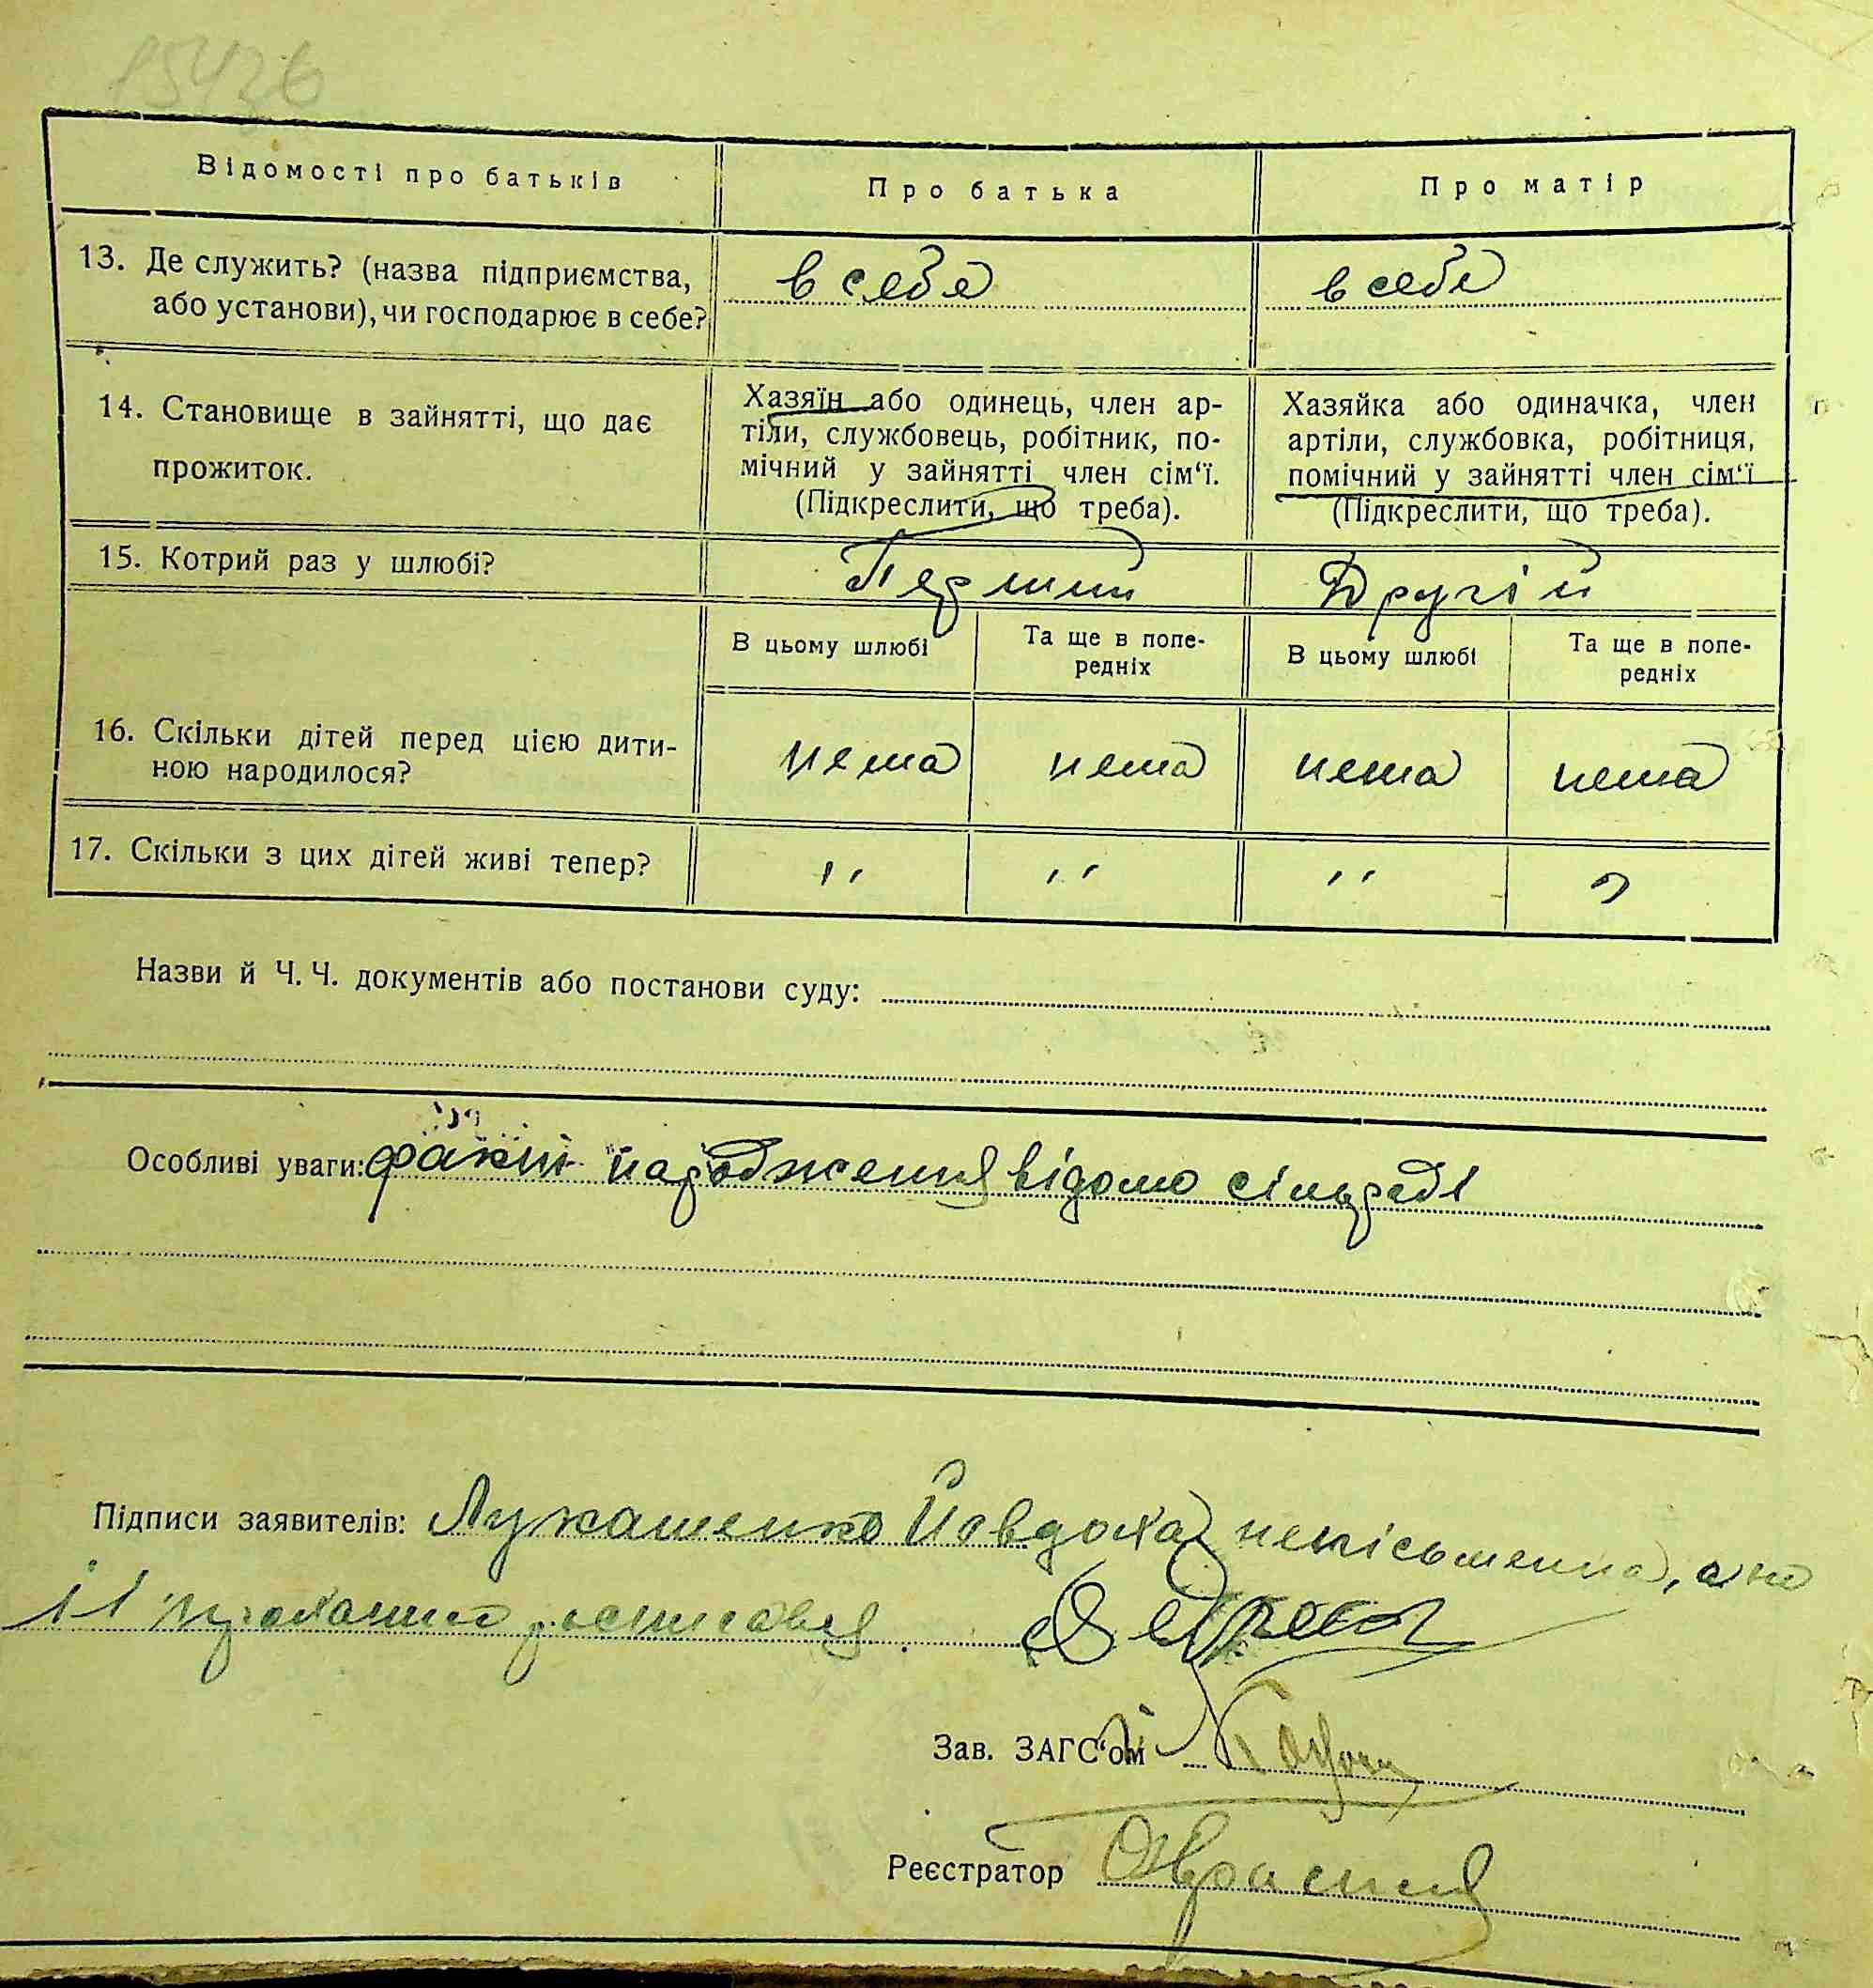 15436
Відомості про батьків Про батька Про матір
13. Де служить? (назва підприємства, в себе в себе
або установи), чи господарює в себе?
14. Становище в зайнятті, що дає Хазяїн або одинець, член ар- Хазяйка або одиначка, член
тіли, службовець, робітник, по- артіли, службовка, робітниця,
прожиток. мічний у зайнятті член сім‘ї. помічний у зайнятті член сім‘ї
(Підкреслити, що треба). (Підкреслити, що треба).
15. Котрий раз у шлюбі? Перший Другій
В цьому шлюбі Та ще в попе- В цьому шлюбі Та ще в попе-
редніх редніх
16. Скільки дітей перед цією дити- нема нема нема нема
ною народилося?
17. Скільки з цих дітей живі тепер? " " "
Назви й Ч. Ч. документів або постанови суду:
Особливі уваги: факт народження відомо сільраді
Підписи заявителів: Лукашенко Йовдоха неписьменна, а по
її проханню росписався
Зав. ЗАГС‘ом
Реєстратор